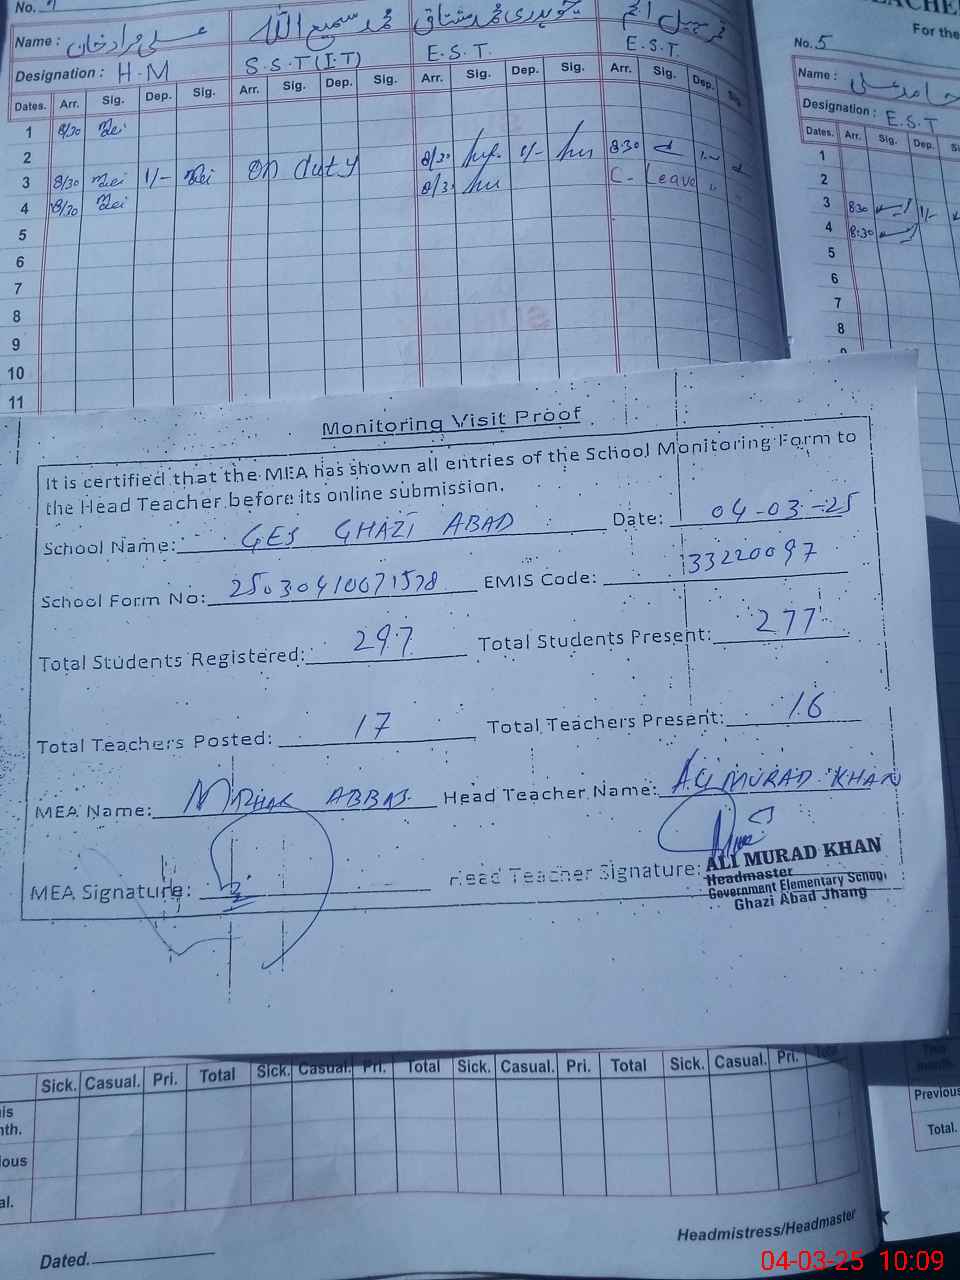 No.
Name : علی مراد خان محمد سمیع اللہ چوہدری محمد مشتاق
Designation : H.M S.S.T (I.T) E.S.T. E.S.T.
Dates. Arr. Sig. Dep. Sig. Arr. Sig. Dep. Sig. Arr. Sig. Dep. Sig. Arr. Sig. Dep. Sig.
1 8/30
2
3 8/30 1/- On duty 8/30 1/- 830
4 8/30 8/3 C- Leave
5
6
7
8
9
10
11
For the
No. 5
Name : حامد علی
Designation : E.S.T
Dates. Arr. Sig. Dep.
1
2
3 830 1/-
4 8:30
5
6
7
8
Monitoring Visit Proof
It is certified that the MEA has shown all entries of the School Monitoring Form to
the Head Teacher before its online submission.
School Name: GES GHAZI ABAD Date: 04-03-25
School Form No: 25030410071578 EMIS Code: 33220097
Total Students Registered: 297 Total Students Present: 277
Total Teachers Posted: 17 Total Teachers Present: 16
MEA Name: ABBAS Head Teacher Name: ALI MURAD KHAN
MEA Signature: Head Teacher Signature: ALI MURAD KHAN
Headmaster
Government Elementary School
Ghazi Abad Jhang
Sick. Casual. Pri. Total Sick. Casual. Pri. Total Sick. Casual. Pri. Total Sick. Casual. Pri. Total
Previous
Total.
Headmistress/Headmaster
Dated.
04-03-25 10:09